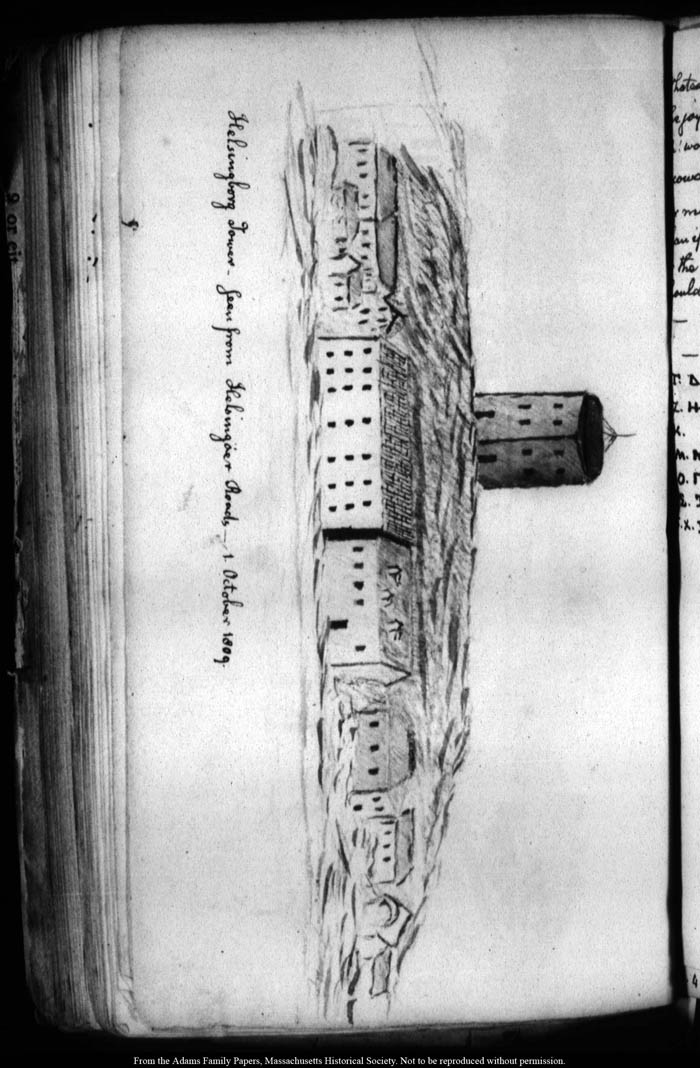 Helsingborg Tower - Seen from Helsingöer Roads, - 1. October 1809.
From the Adams Family Papers, Massachusetts Historical Society. Not to be reproduced without permission.